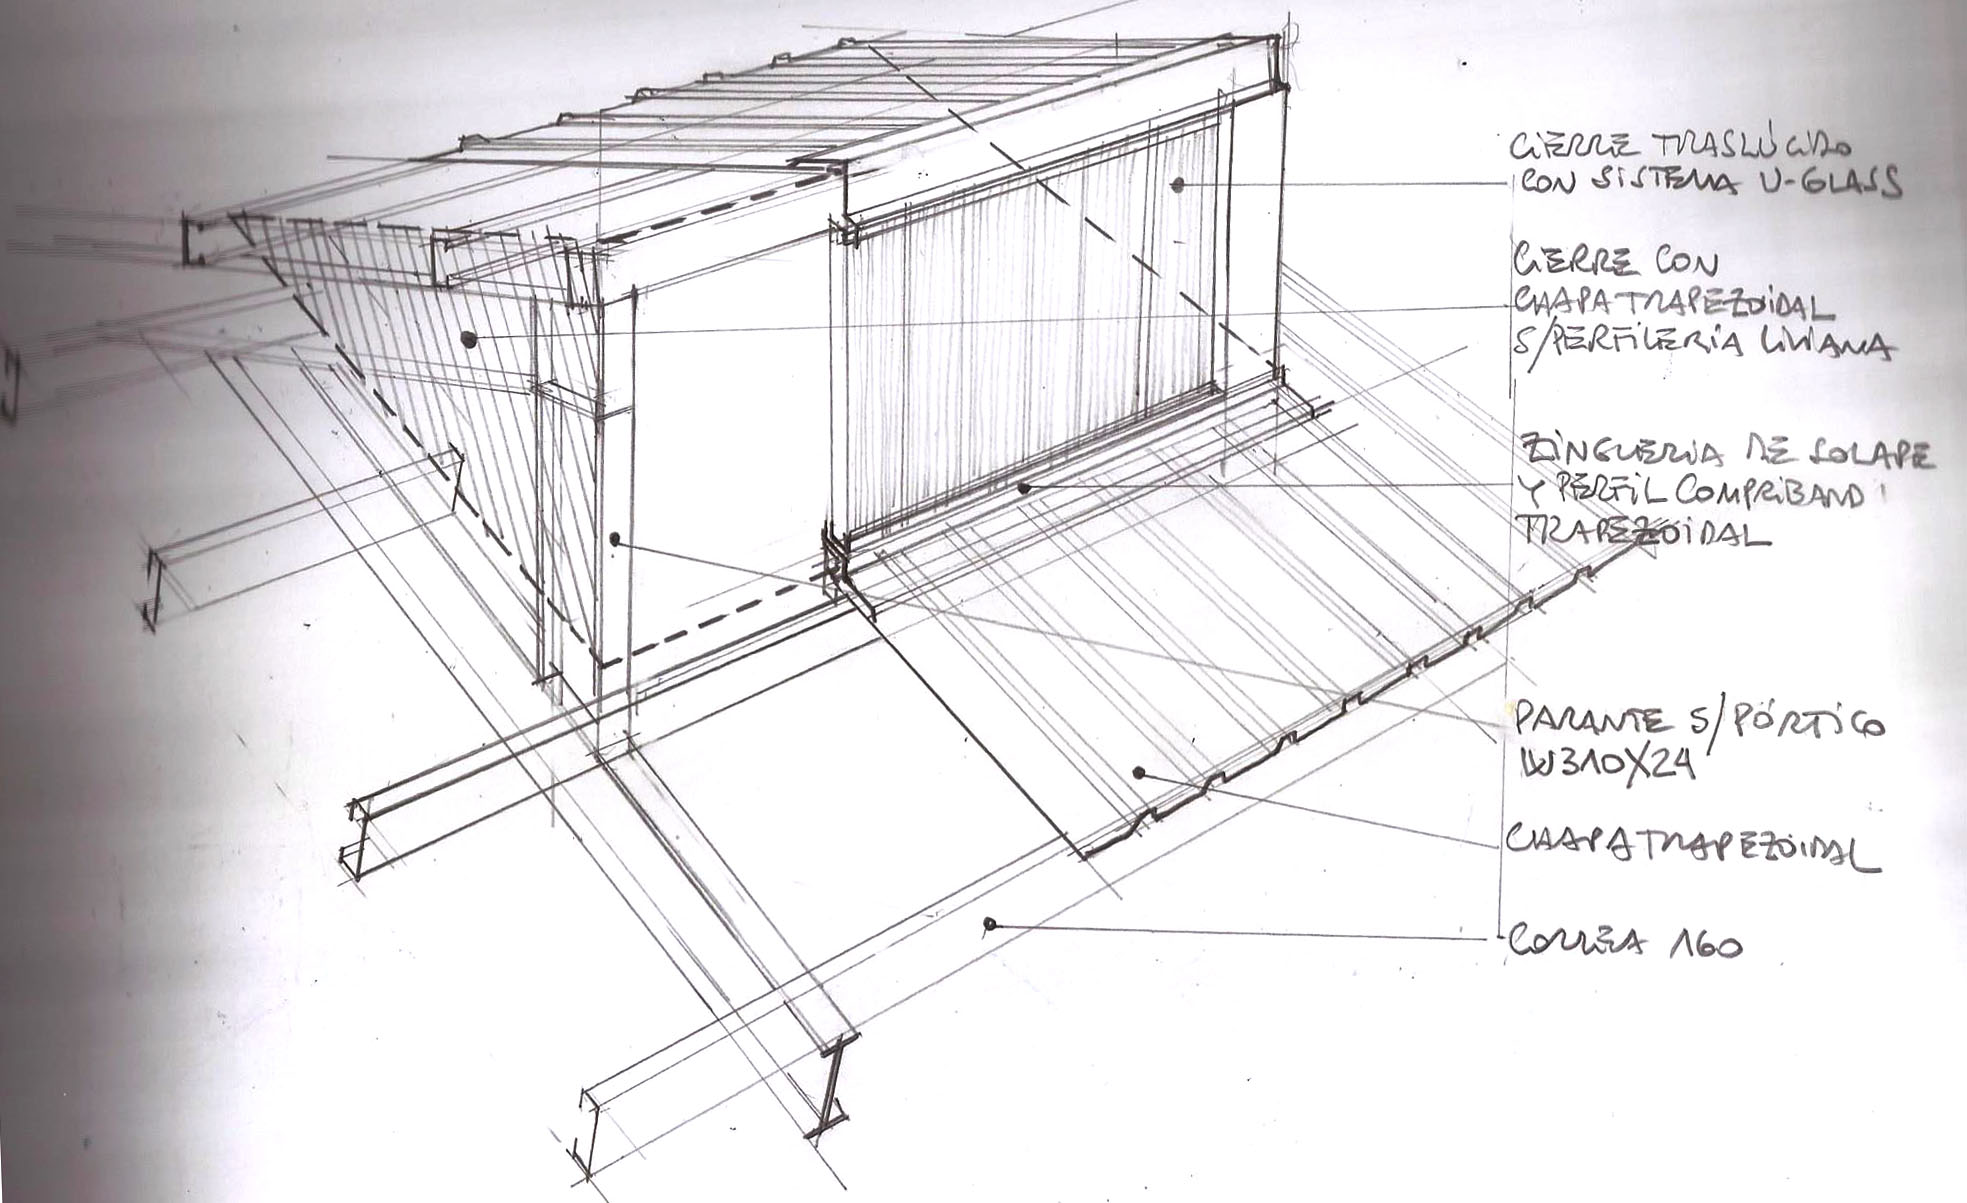 CIERRE TRASLÚCIDO
CON SISTEMA U-GLASS
CIERRE CON
CHAPA TRAPEZOIDAL
S/PERFILERIA LIVIANA
ZINGUERIA DE SOLAPE
Y PERFIL COMPRIBAND
TRAPEZOIDAL
PARANTE S/PÓRTICO
W310X24
CHAPA TRAPEZOIDAL
CORREA 160